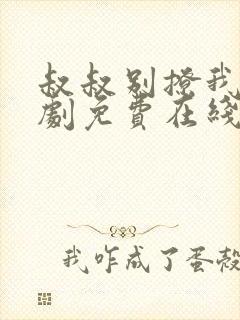 叔叔别撩我
劇免費在綫
我咋成了蛋殼